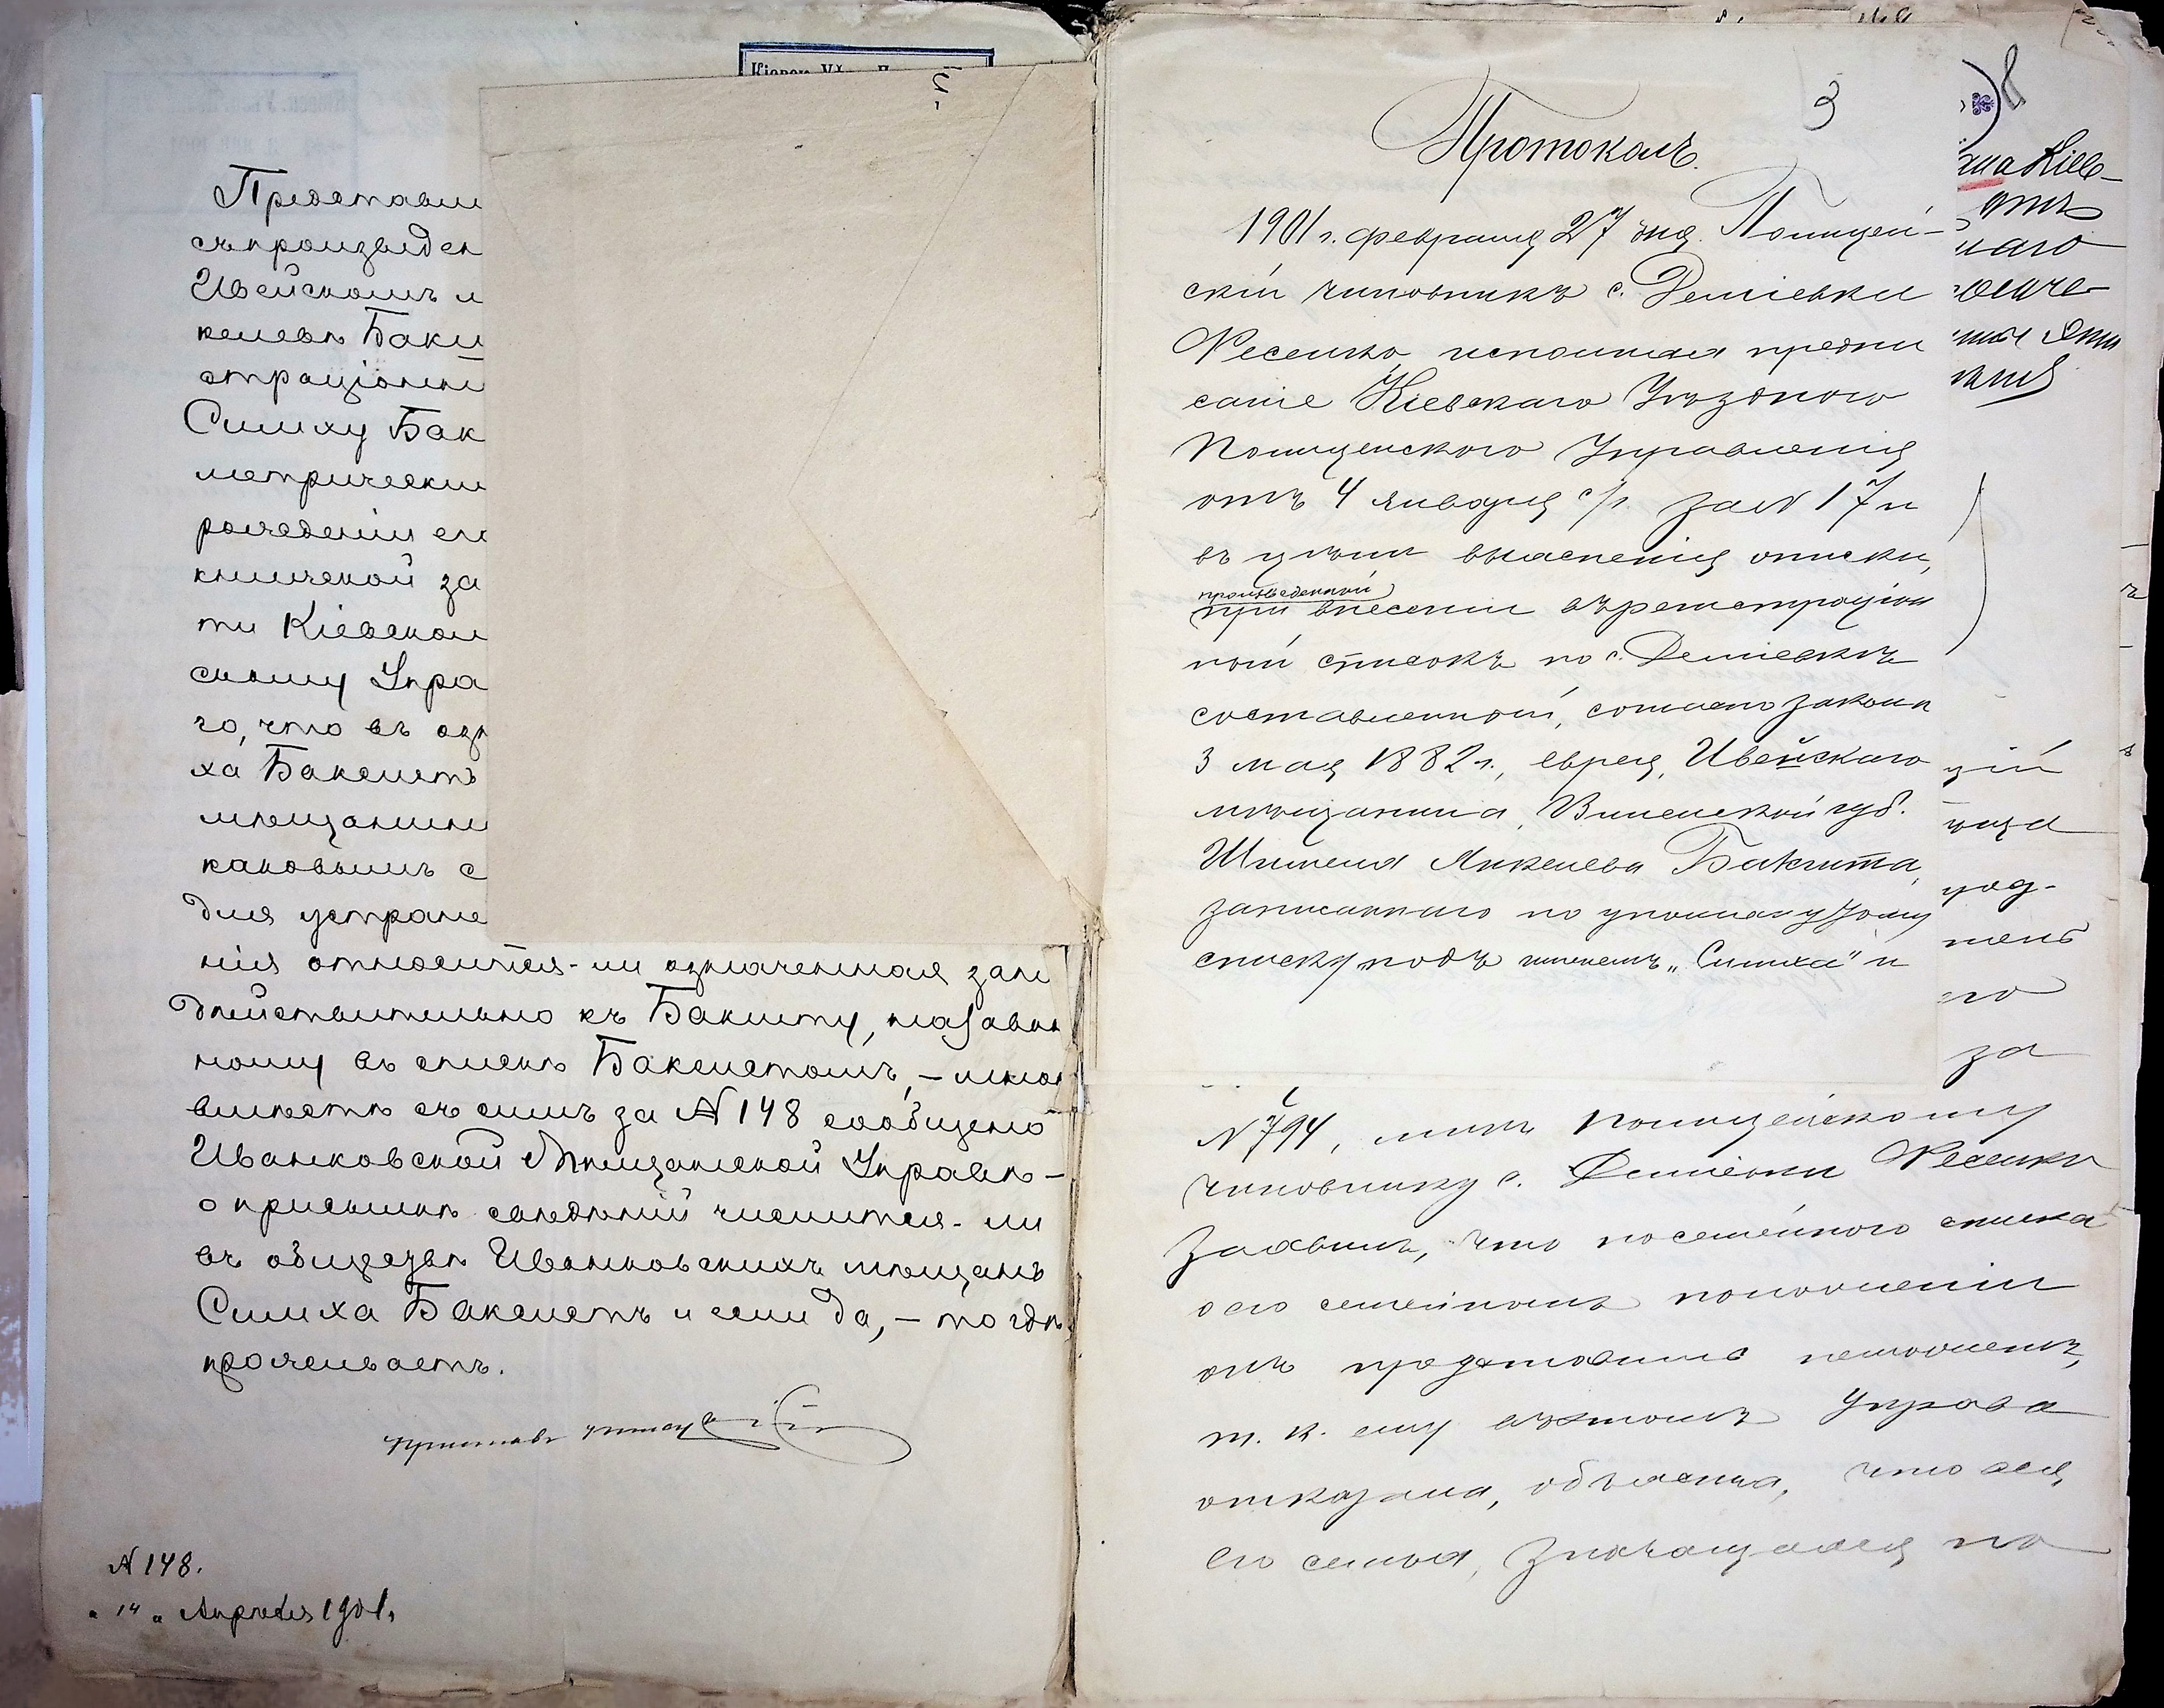 Кіевск. Уѣ
Представле
съ произведен
Ивейскомъ м
келевѣ Баки
страціонны
Симху Бак
метрически
рожденіи ег
книжкой за
ти Кіевском
скому Упра
го, что въ озн
ха Бакештъ
мѣщанин
каковымъ с
для устране
нія относится-ли означенная зап
дѣйствительно къ Бакшту, назван
ному въ спискѣ Бакештомъ, –
вмѣстѣ съ симъ за № 148 сообщено
Иванковской Мѣщанской Управѣ –
о присылкѣ свѣдѣній числится-ли
въ обществѣ Иванковскихъ мѣщанъ
Симха Бакештъ и если да, – то гдѣ
проживаетъ.
Приставъ
№ 148.
" 14 " Апрѣля 1901 г.
3
Протоколъ.
1901 г. февраля 27 дня. Полицей-
скій чиновникъ с. Деміевки
Фесенко, исполняя предпи
саніе Кіевскаго Уѣзднаго
Полицейскаго Управленія
отъ 4 января с/г. за № 17 и
въ цѣли выясненія описки,
произведенной
при внесеніи въ регистраціон
ный списокъ по с. Деміевкѣ
составленный, согласно закона
3 мая 1882 г., еврея, Ивейскаго
мѣщанина, Виленской губ.
Шмуеля Янкелева Бакшта,
записаннаго по упомянутому
списку подъ именемъ „Симха" и
ана Кіев-
отъ
наго
цій
за
№ 794, мнѣ Полицейскому
чиновнику с. Деміевки Фесенко
заявилъ, что посемейнаго списка
о его семейномъ положеніи
онъ представить не можетъ,
т. к. ему въ этомъ Управа
отказала, объясняя, что вся,
его семья, значащаяся по